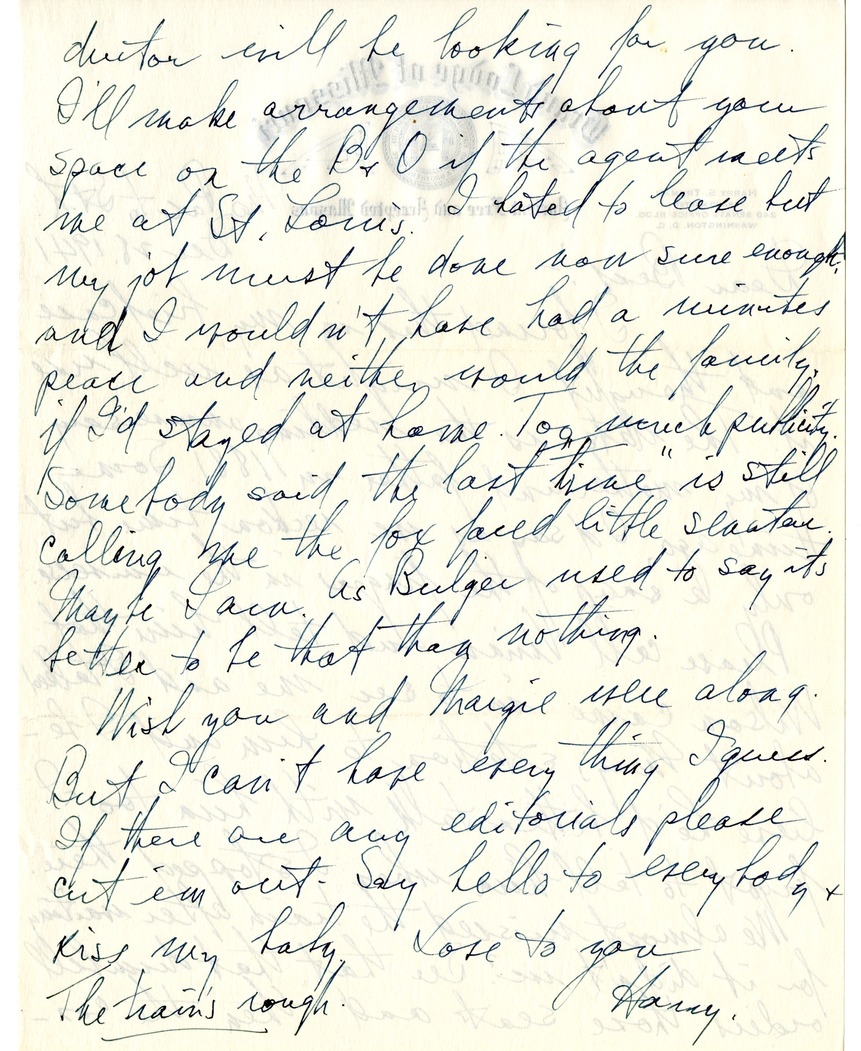 ductor will be looking for you.
I'll make arrangements about your
space on the B & O if the agent meets
me at St. Louis. I hated to leave but
my job must be done now sure enough.
and I wouldn't have had a minutes
peace and neither would the family,
if I'd stayed at home. Too much publicity.
Somebody said the last "time" is still
calling me the fox faced little senator.
Maybe I am. As Bulger used to say its
better to be that than nothing.
Wish you and Margie were along.
But I can't have every thing I guess.
If there are any editorials please
cut 'em out- Say hello to everybody &
kiss my baby. Love to you
The train's rough. Harry.
Grand Lodge of Missouri
Ancient Free and Accepted Masons
HARRY S. TRUMAN
240 SENATE OFFICE BLDG.
WASHINGTON, D. C.